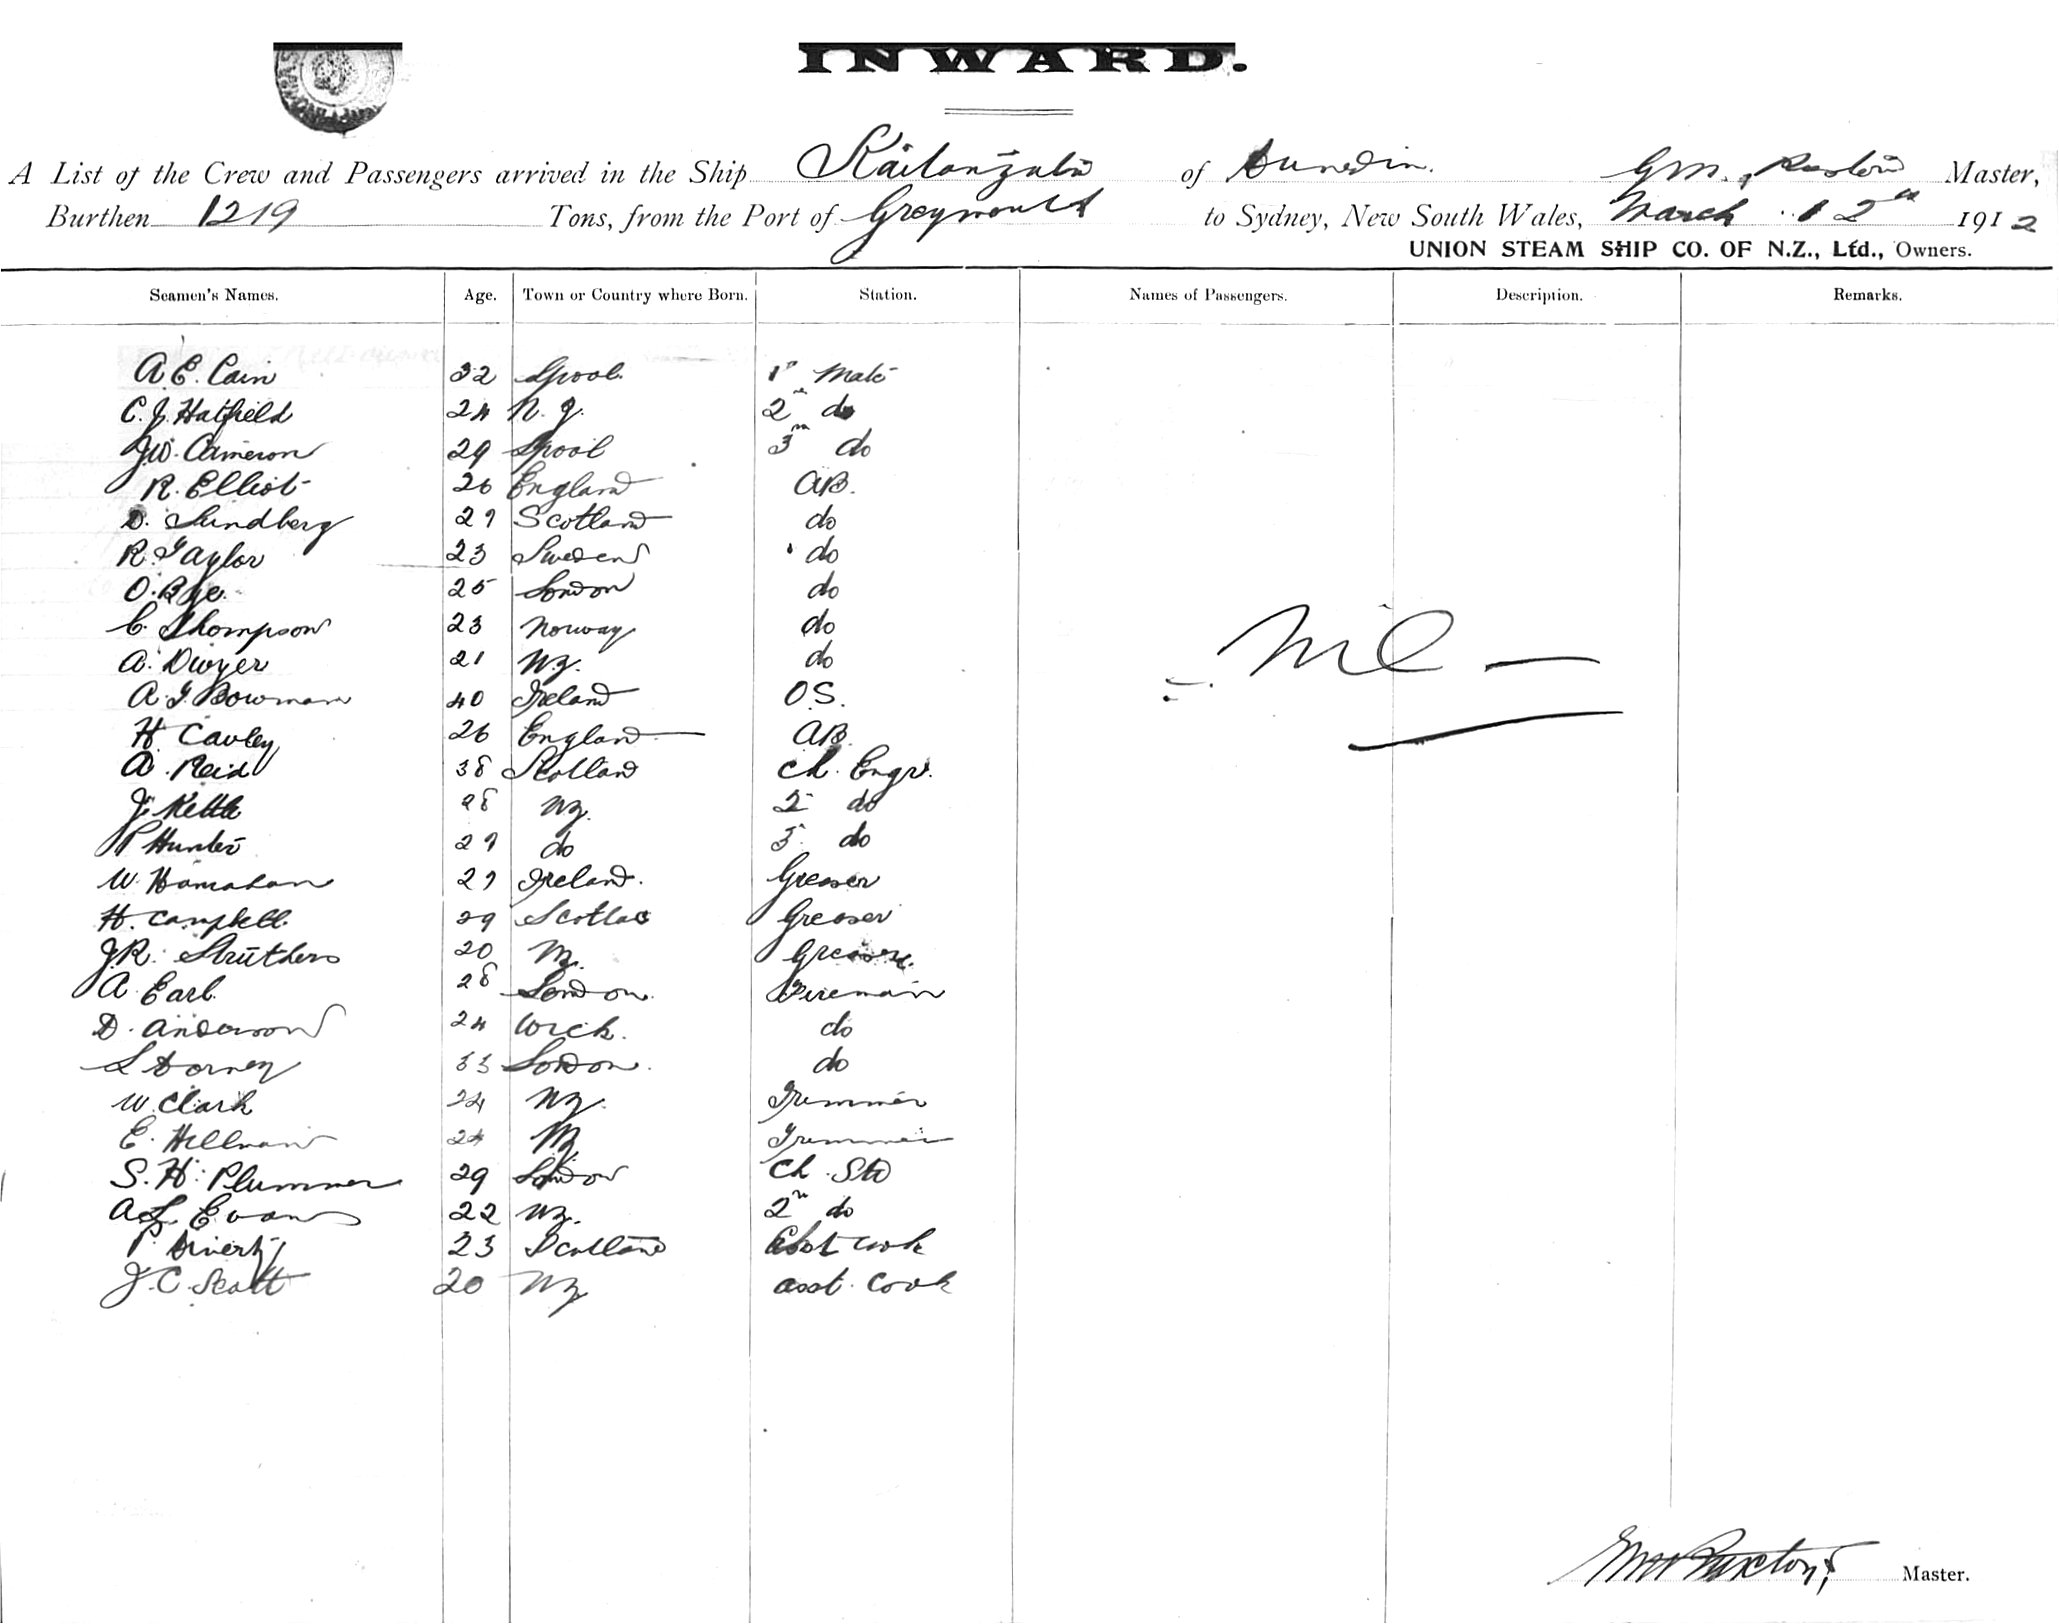 INWARD.
A List of the Crew and Passengers arrived in the Ship Kaitangata of Dunedin. G.M. Master,
Burthen 1219 Tons, from the Port of Greymouth to Sydney, New South Wales, March 12th 1912
UNION STEAM SHIP CO. OF N.Z., Ltd., Owners.
Seamen's Names. Age. Town or Country where Born. Station. Names of Passengers. Description. Remarks.
A. E. Cain 32 Lpool. 1st Mate
C. J. Hatfield 24 N. Z. 2nd do
J. W. Cameron 29 Lpool 3rd do
R. Elliot 26 England AB.
D. Sundberg 27 Scotland do
R. Taylor 23 Sweden do
O. Bye. 25 London do
C. Thompson 23 Norway do
A. Dwyer 21 N.Z. do
A. J. Bowman 40 Ireland O.S.
H. Cavley 26 England AB.
A. Reid 38 Scotland Ch. Engr.
J. Kettle 28 NZ. 2 do
P Hunter 27 do 3 do
W. Hanrahan 27 Ireland. Greaser
H. Campbell. 29 Scotland Greaser
J R. Struthers 20 NZ. Greaser.
A. Earl. 28 London. Fireman
D. Anderson 24 Wick. do
L Dorney 33 London. do
W. Clark 24 NZ. Trimmer
E. Hillman 24 NZ Trimmer
S. H. Plummer 29 London Ch. Std
A L Evans 22 NZ. 2nd do
P. 23 Scotland cook
J. C. Scott 20 NZ asst. Cook
Nil —
G M Ruxton Master.